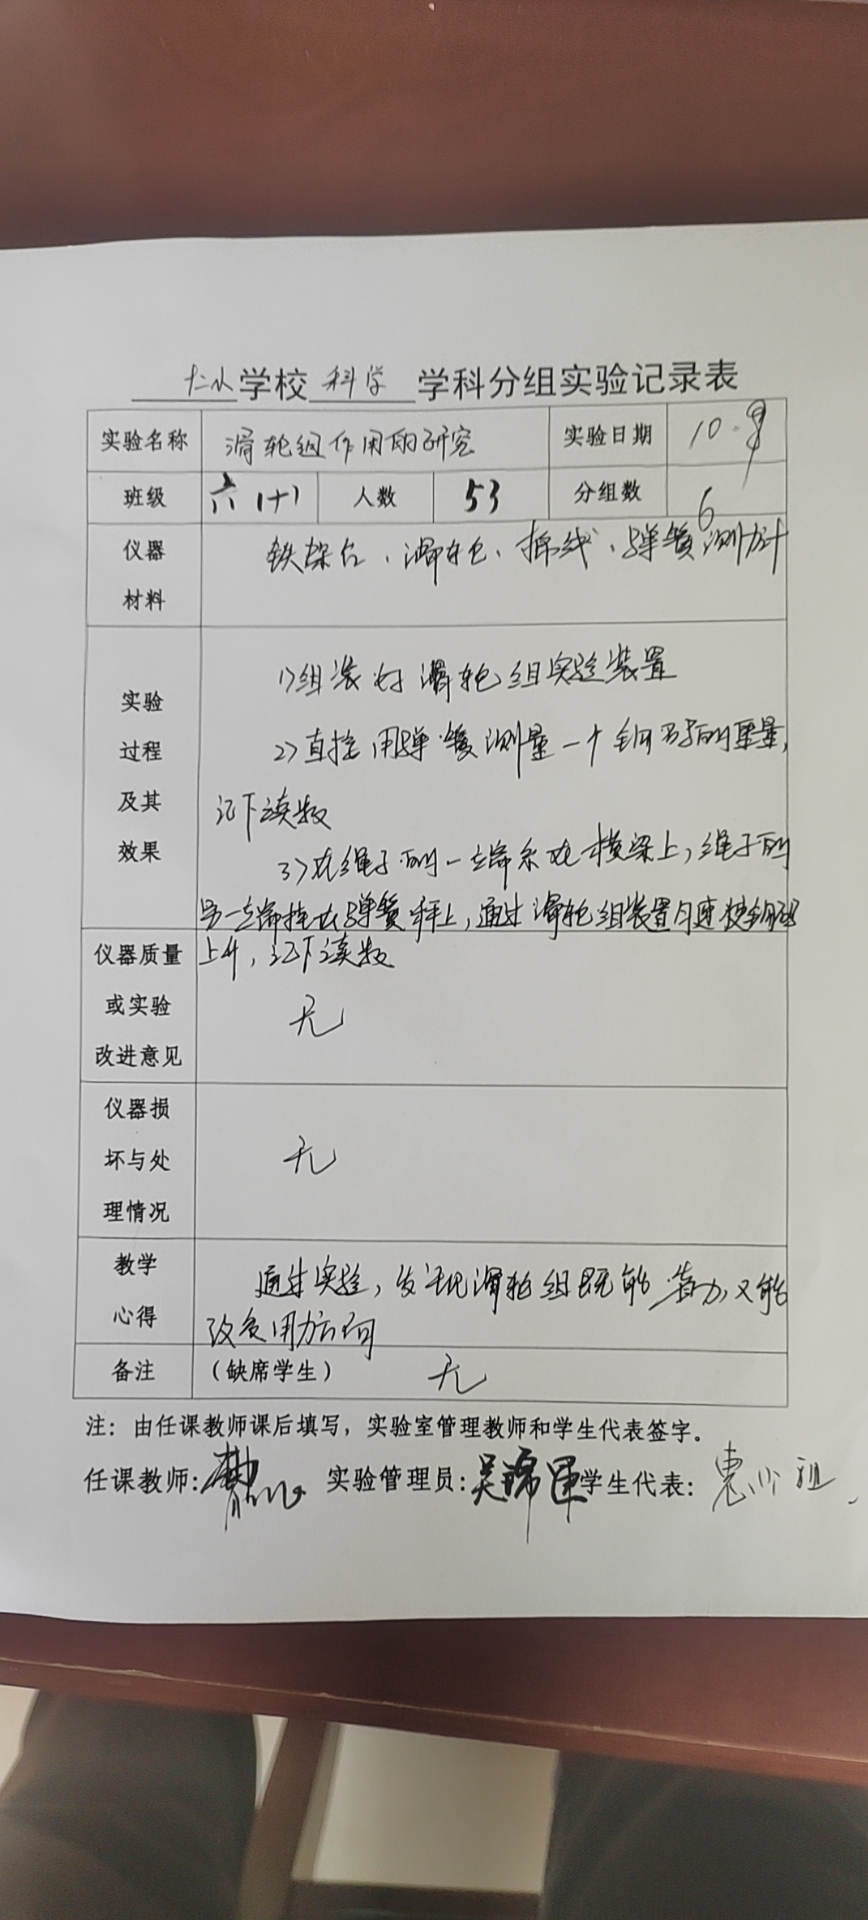 学校 科学 学科分组实验记录表
实验名称 滑轮组作用的研究 实验日期 10.9
班级 六(十) 人数 53 分组数 6
仪器材料 铁架台、滑轮、棉线、弹簧测力计
实验过程及其效果
1)组装好滑轮组实验装置
2)直接用弹簧测量一个钩码的重量,
记下读数
3)将绳子的一端系在横梁上,绳子的
另一端挂在弹簧秤上,通过滑轮组装置匀速使钩码
上升,记下读数
仪器质量或实验改进意见 无
仪器损坏与处理情况 无
教学心得 通过实验,发现滑轮组既能省力,又能
改变用力方向
备注 (缺席学生) 无
注:由任课教师课后填写,实验室管理教师和学生代表签字。
任课教师: 实验管理员:吴 学生代表: